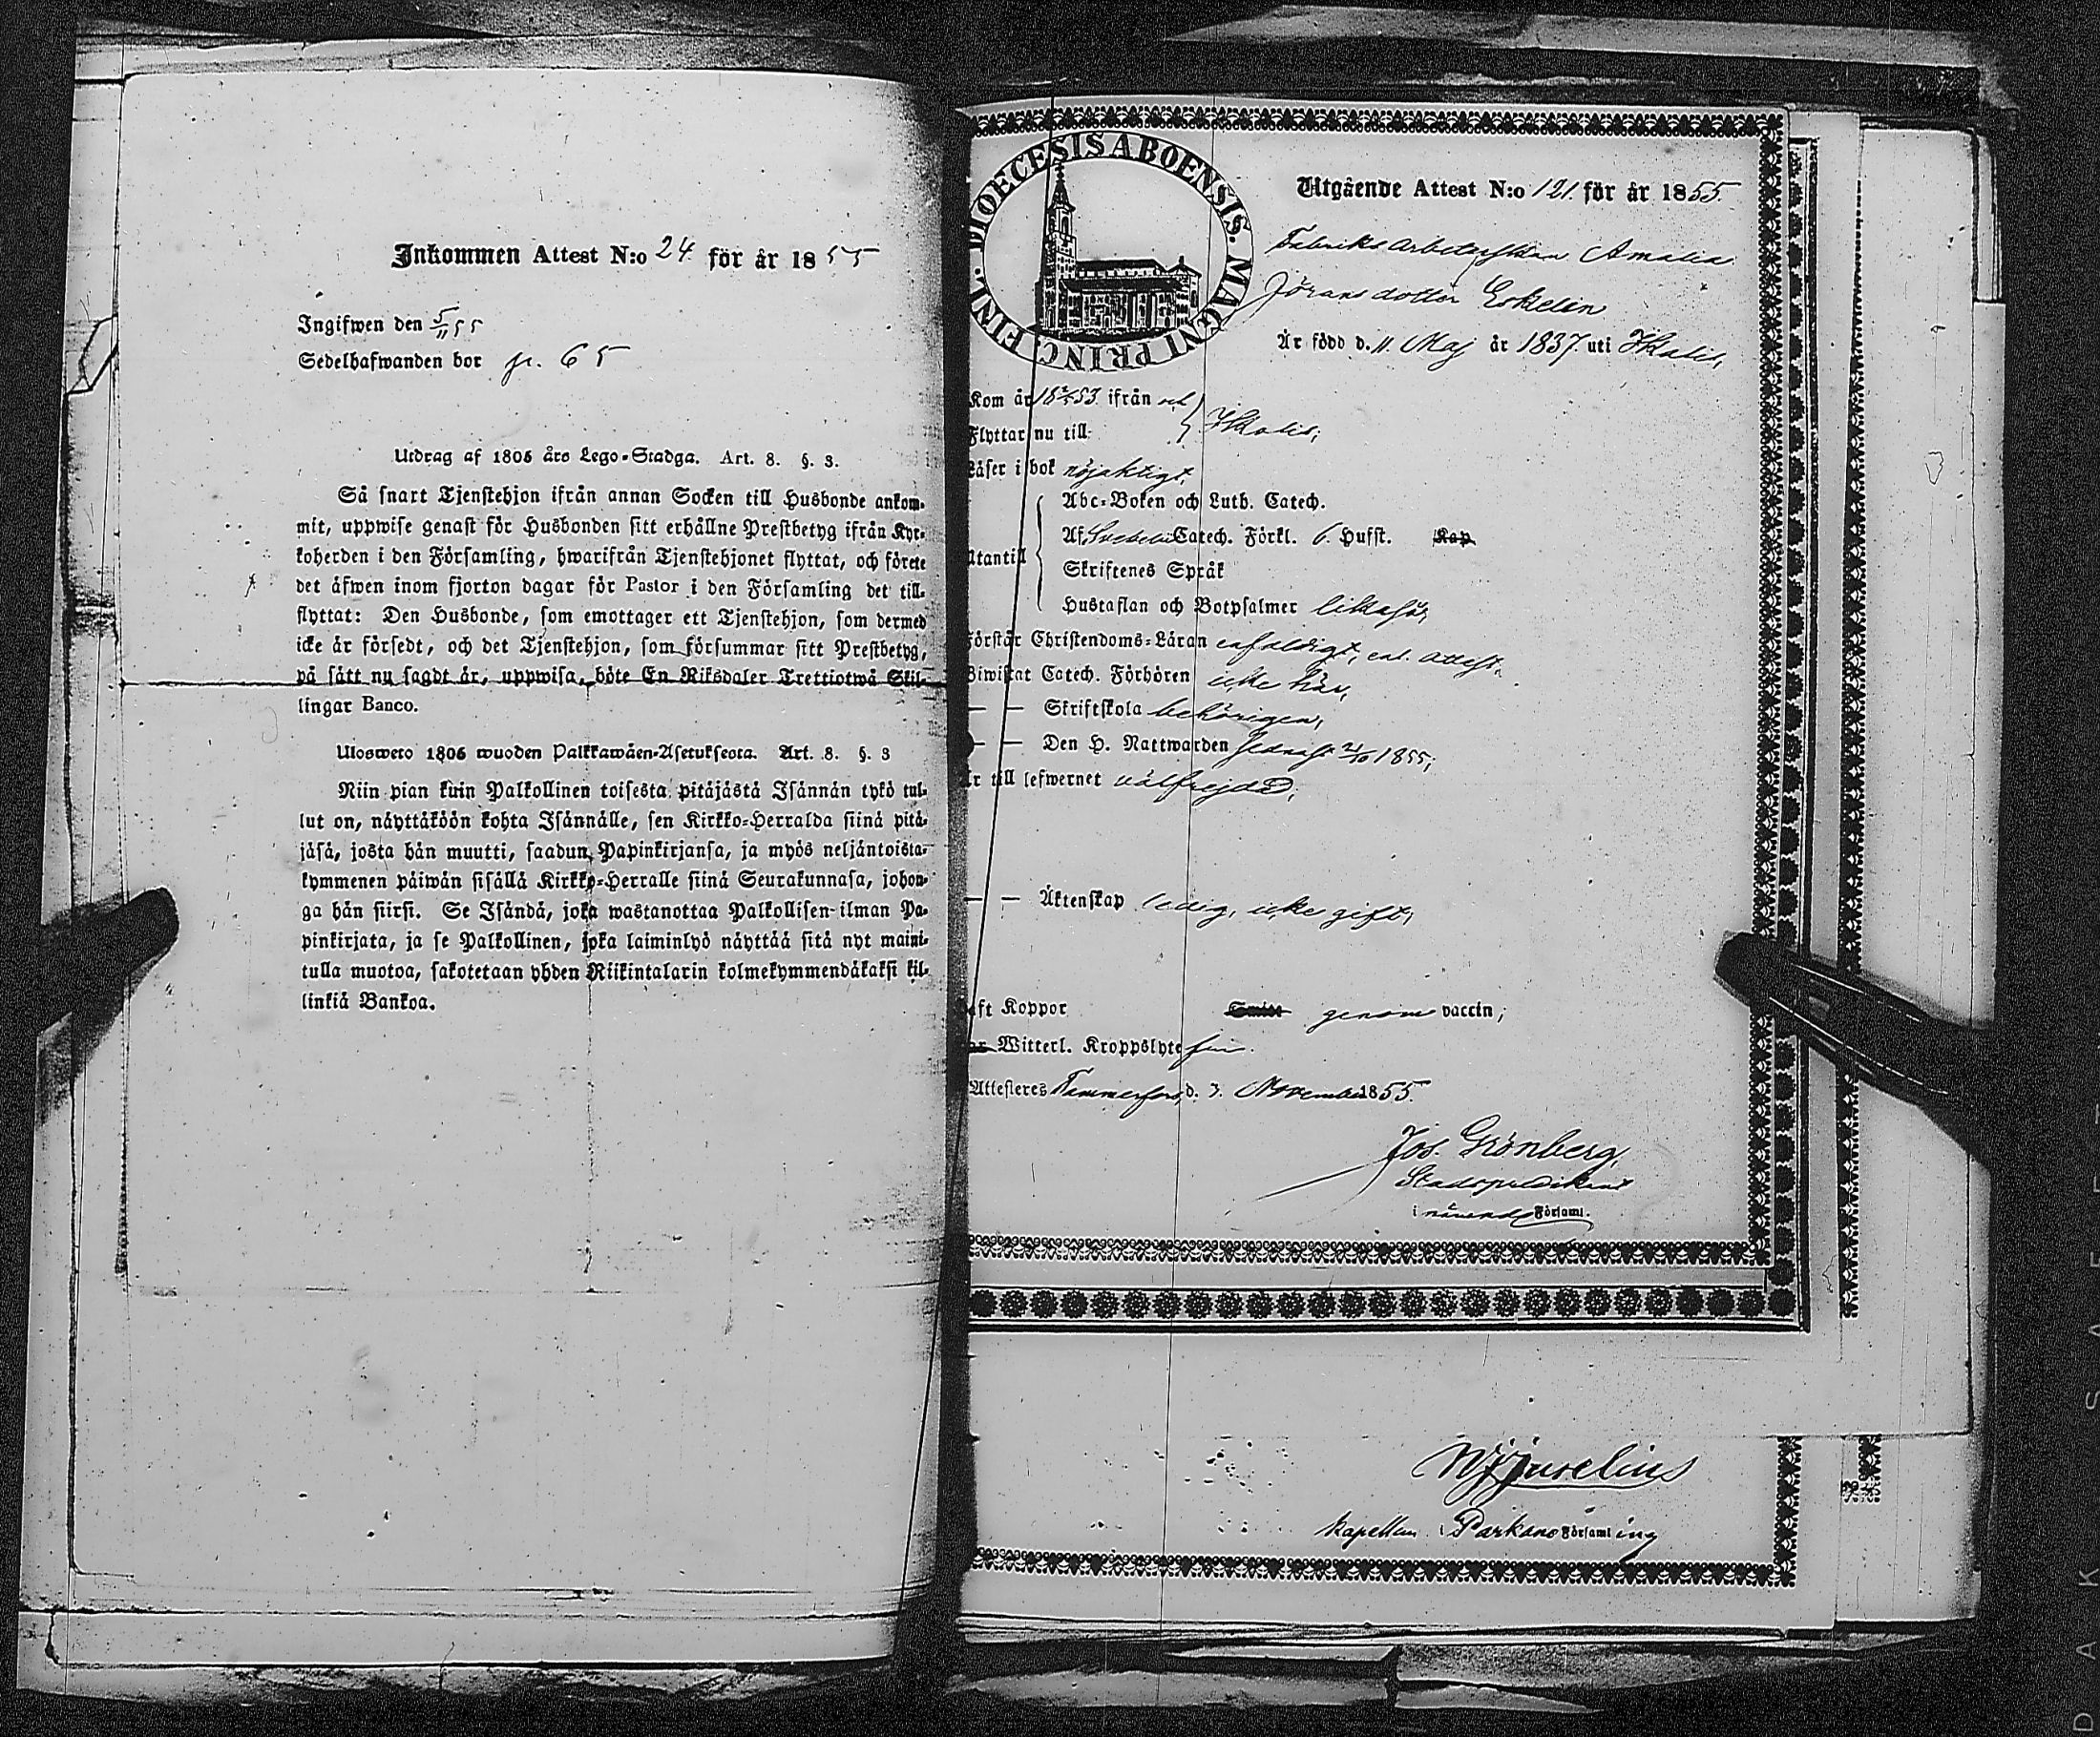 Inkommen Attest N:o 24 för år 1855
Ingifwen den 5/11 55
Sedelhafwanden bor p. 65
Utdrag af 1805 års Lego-Stadga. Art. 8. §. 3.
Så snart Tjenstehjon ifrån annan Socken till Husbonde ankom-
mit, uppwise genast för Husbonden sitt erhållne Prestbetyg ifrån Kyr-
koherden i den Församling, hwarifrån Tjenstehjonet flyttat, och förete
det äfwen inom fjorton dagar för Pastor i den Församling det till-
flyttat: Den Husbonde, som emottager ett Tjenstehjon, som dermed
icke är försedt, och det Tjenstehjon, som försummar sitt Prestbetyg,
på sätt nu sagdt är, uppwisa, böte En Riksdaler Trettiotwå Skil-
lingar Banco.
Ulosweto 1805 wuoden Palkkawäen-Asetuksesta. Art. 8. §. 3
Niin pian kuin Palkollinen toisesta pitäjästä Isännän tykö tul-
lut on, näyttäköön kohta Isännälle, sen Kirkko-Herralda siinä pitä-
jäsä, josta hän muutti, saadun Papinkirjansa, ja myös neljäntoista-
kymmenen päiwän sisällä Kirkko-Herralle siinä Seurakunnasa, johon-
ga hän siirsi. Se Isändä, joka wastanottaa Palkollisen ilman Pa-
pinkirjata, ja se Palkollinen, joka laiminlyö näyttää sitä nyt maini-
tulla muotoa, sakotetaan yhden Riikintalarin kolmekymmendäkaksi kil-
linkiä Bankoa.
DIOECESIS ABOENSIS. MAGNI PRINC. FINL.
Utgående Attest N:o 121. för år 1855.
Fabriks arbeterskan Amalia
Jörans dotter Eskelin
Är född d. 11 Maj år 1837. uti Ikalis,
Kom år 1853 ifrån och
Flyttar nu till
Ikalis;
Läser i bok nöjaktigt,
Utantill
Abc-Boken och Luth. Catech.
Af Svebelii Catech. Förkl. 6. Hufst. Kap
Skriftenes Språk
Hustaflan och Botpsalmer likaså,
Förstår Christendoms-Läran enfaldigt, enl. attest.
Biwistat Catech. Förhören icke här,
— — Skriftskola behörigen,
— — Den H. Nattwarden sednast 21/10 1855;
Är till lefwernet välfrejdad;
— — Äktenskap ledig, icke gift,
aft Koppor genom vaccin;
Witterl. Kroppslyte fri.
Attesteres Tammerfors, d. 3. November 1855.
Jos. Grönberg,
Stadspredikant
i närvarande Församl.
Kapellan i Parkano Församling
D A K